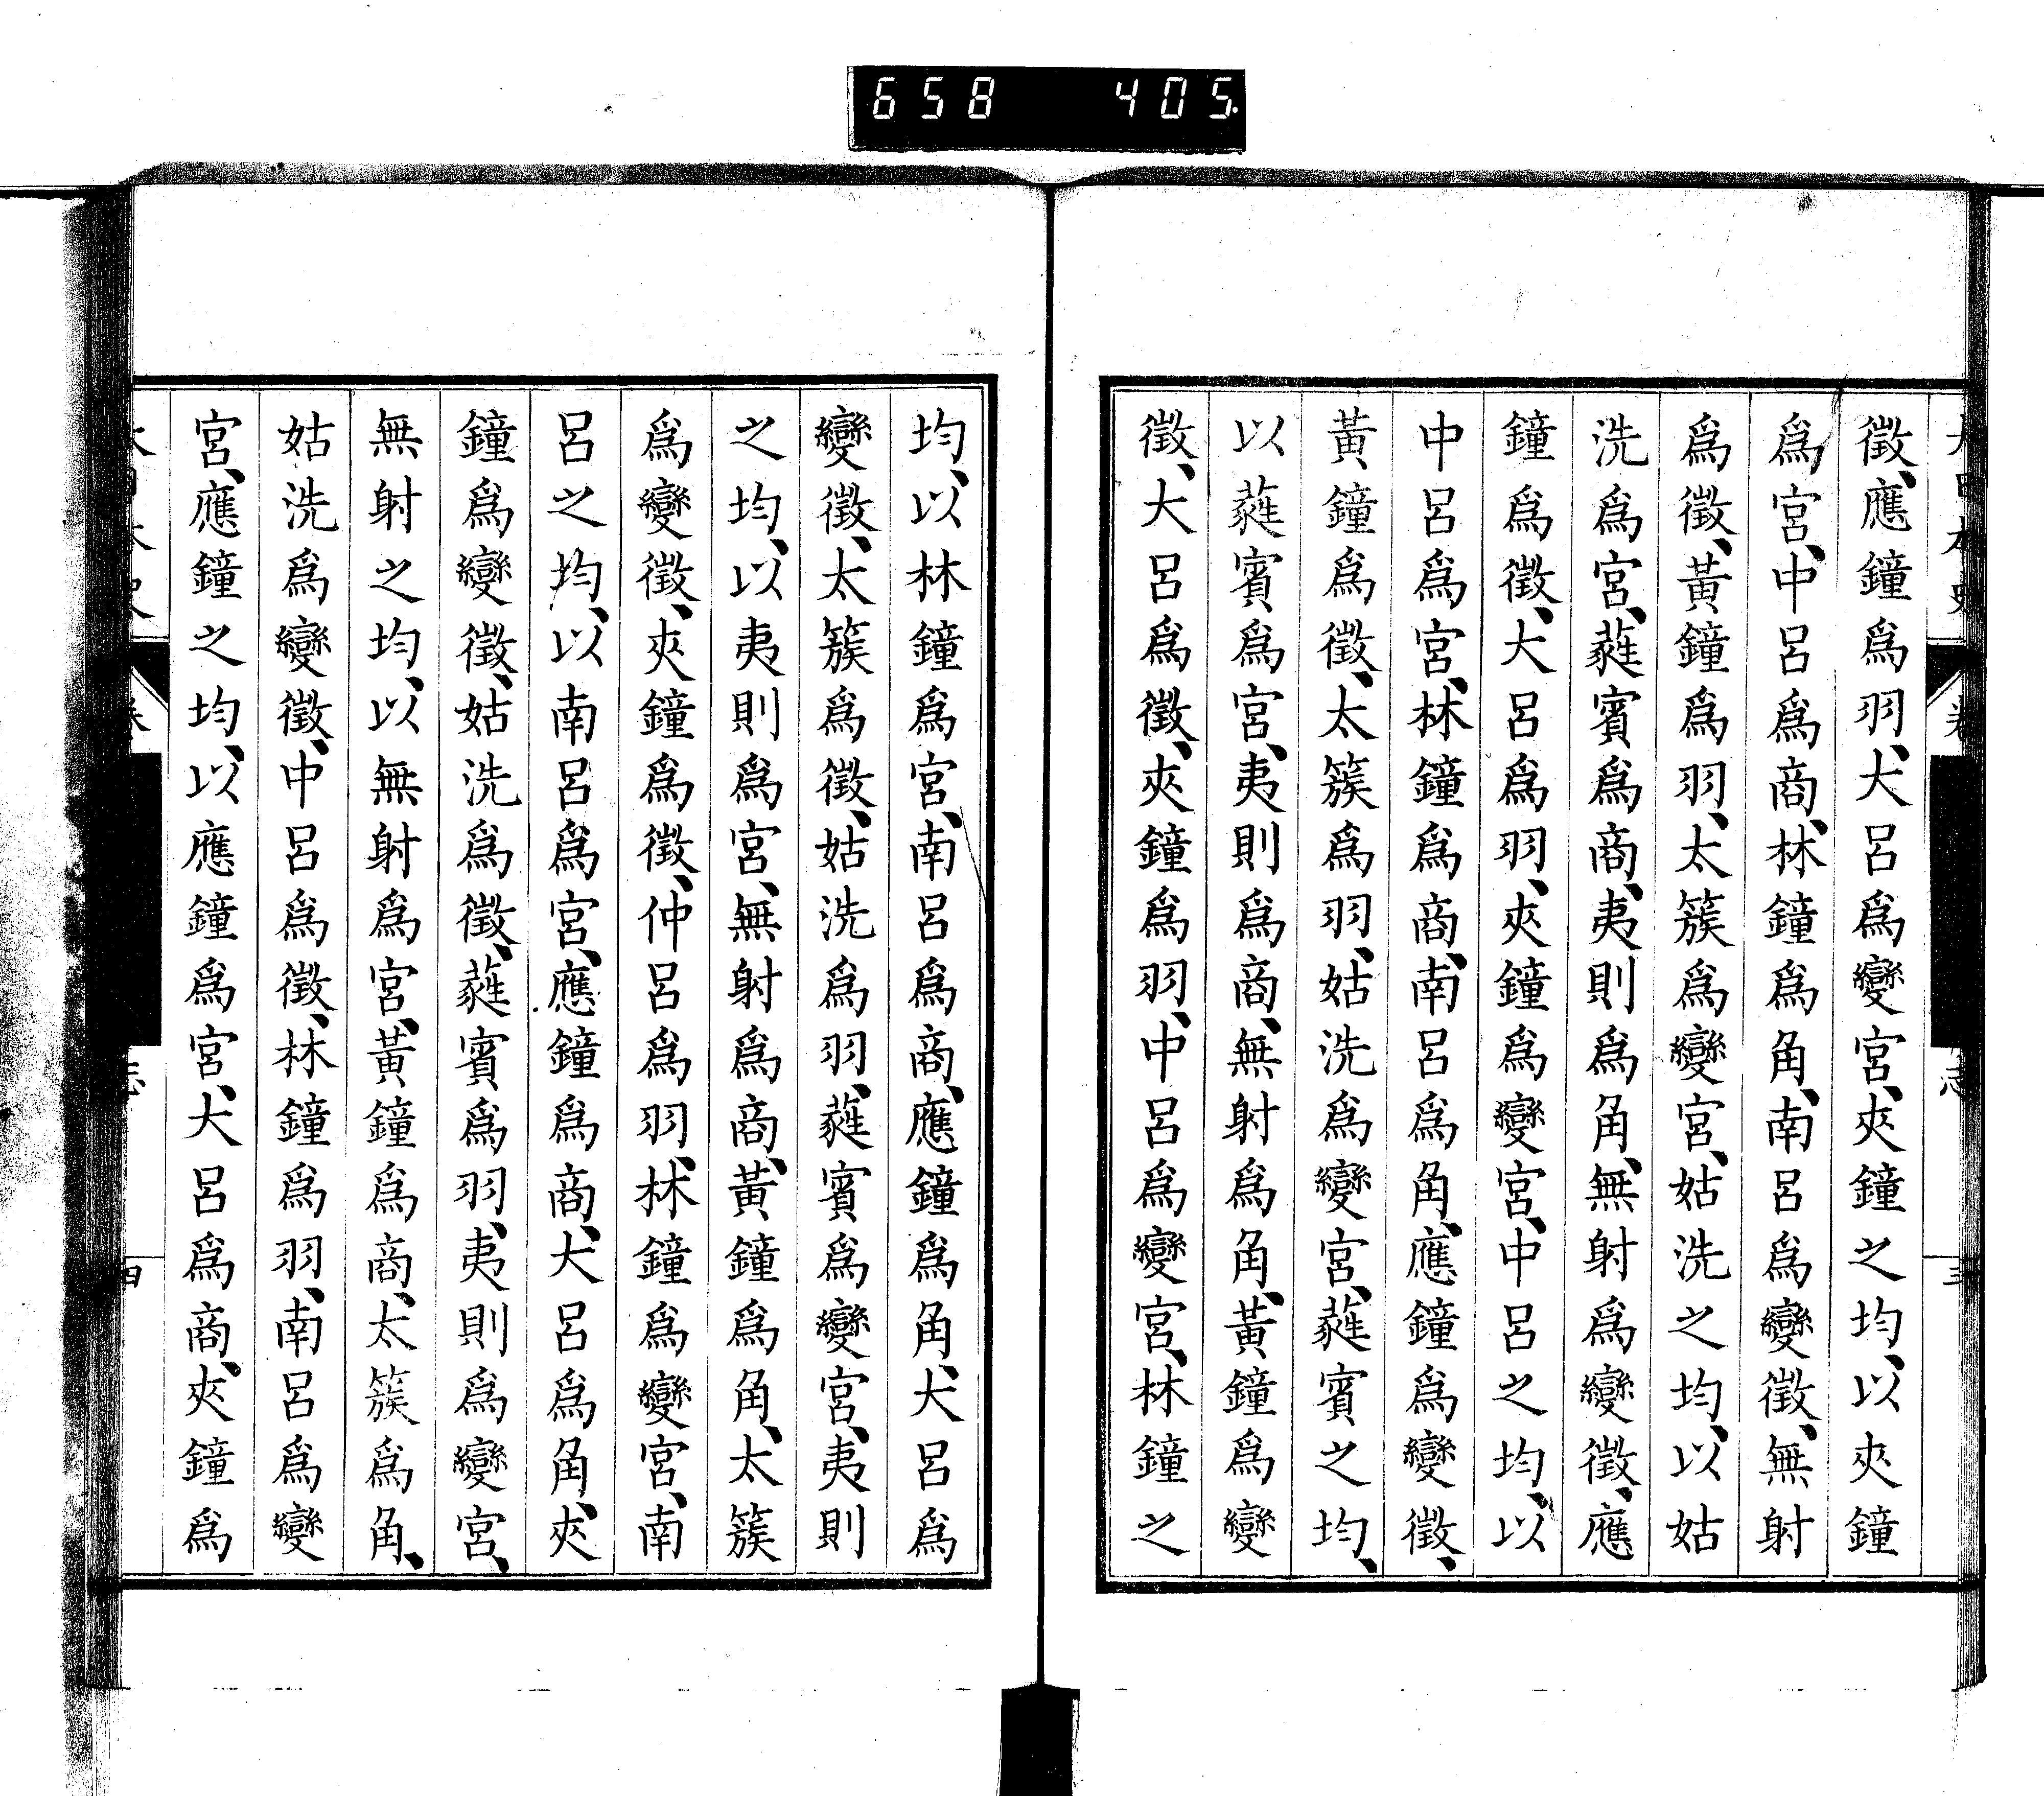 658 405.
大日本史 卷 志 三
徵、應鐘爲羽、大呂爲變宮、夾鐘之均、以夾鐘
爲宮、中呂爲商、林鐘爲角、南呂爲變徵、無射
爲徵、黃鐘爲羽、太簇爲變宮、姑洗之均、以姑
洗爲宮、蕤賓爲商、夷則爲角、無射爲變徵、應
鐘爲徵、大呂爲羽、夾鐘爲變宮、中呂之均、以
中呂爲宮、林鐘爲商、南呂爲角、應鐘爲變徵、
黃鐘爲徵、太簇爲羽、姑洗爲變宮、蕤賓之均、
以蕤賓爲宮、夷則爲商、無射爲角、黃鐘爲變
徵、大呂爲徵、夾鐘爲羽、中呂爲變宮、林鐘之
均、以林鐘爲宮、南呂爲商、應鐘爲角、大呂爲
變徵、太簇爲徵、姑洗爲羽、蕤賓爲變宮、夷則
之均、以夷則爲宮、無射爲商、黃鐘爲角、太簇
爲變徵、夾鐘爲徵、仲呂爲羽、林鐘爲變宮、南
呂之均、以南呂爲宮、應鐘爲商、大呂爲角、夾
鐘爲變徵、姑洗爲徵、蕤賓爲羽、夷則爲變宮、
無射之均、以無射爲宮、黃鐘爲商、太簇爲角、
姑洗爲變徵、中呂爲徵、林鐘爲羽、南呂爲變
宮、應鐘之均、以應鐘爲宮、大呂爲商、夾鐘爲